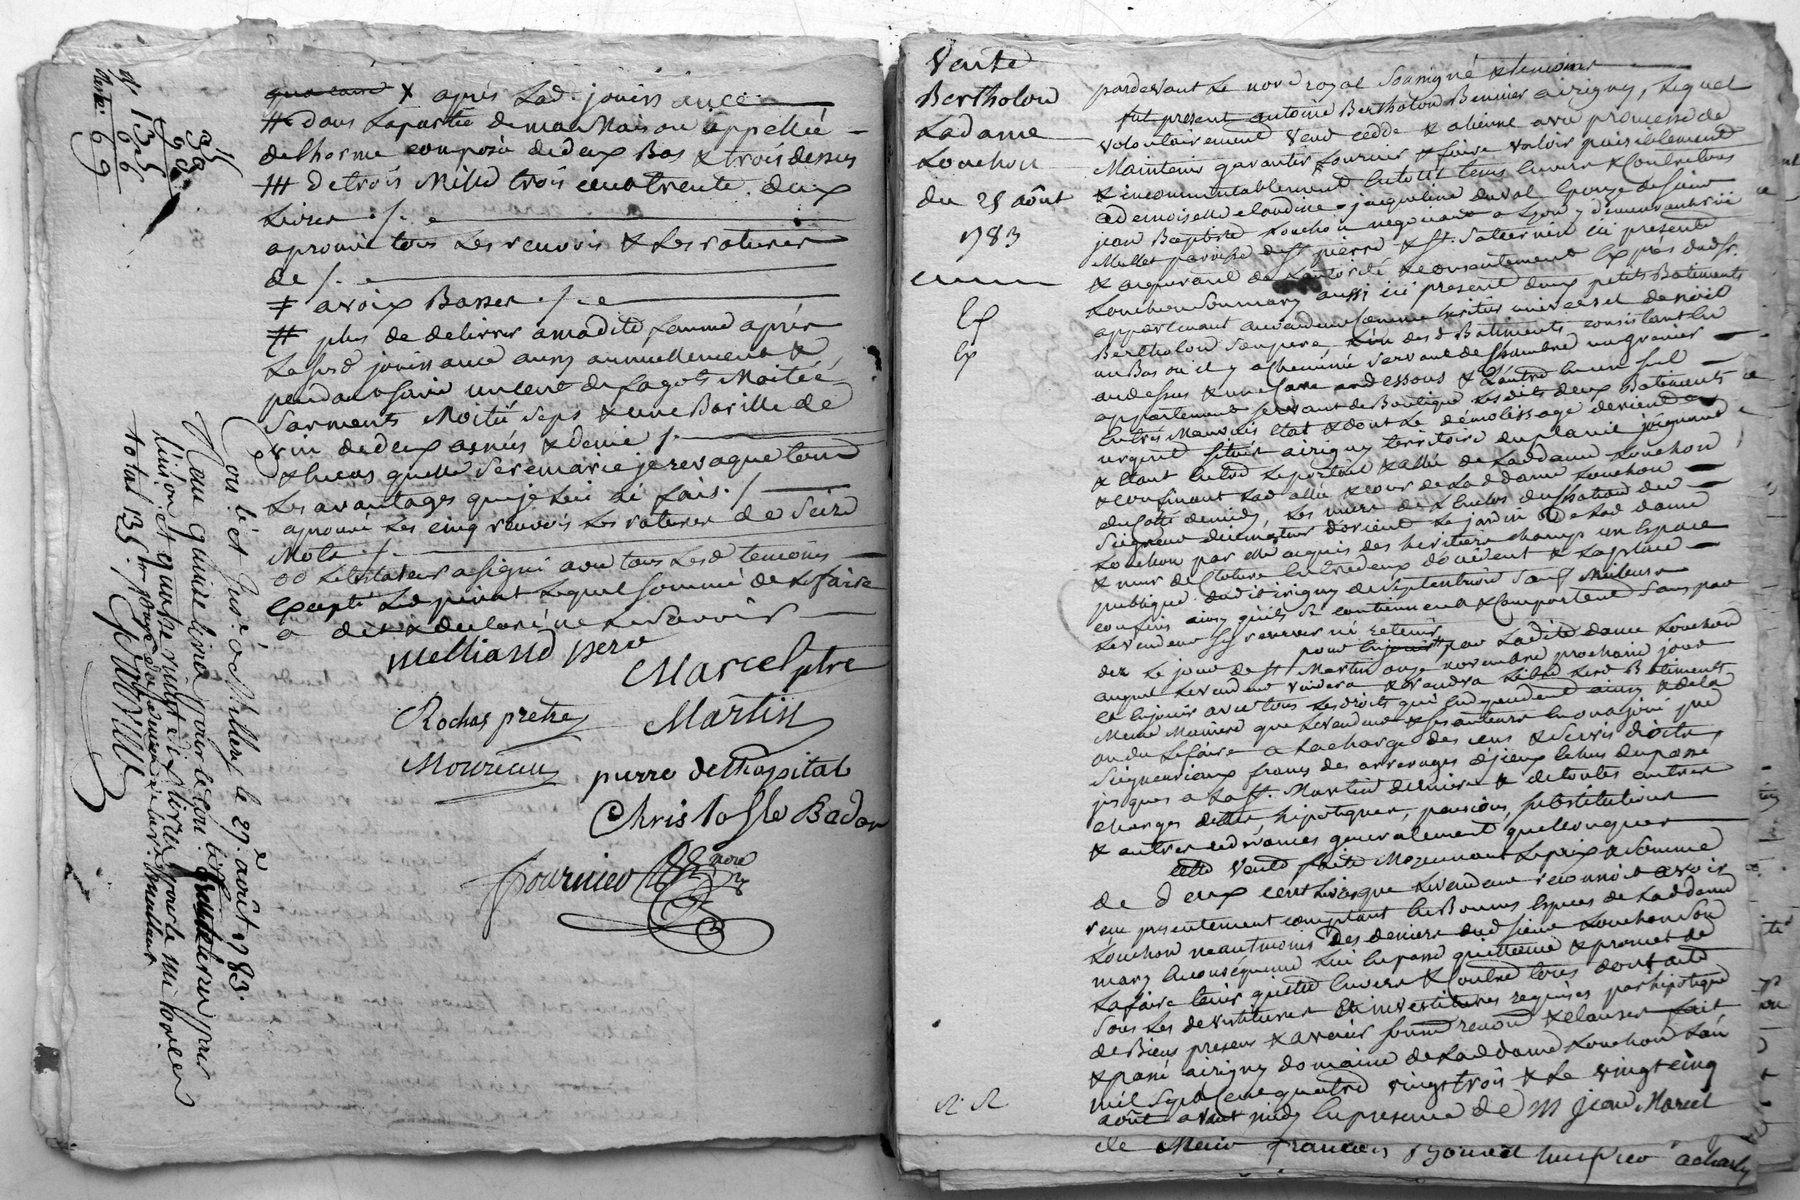 X après lad. jouissance
# dans la partie de ma Maison appellée
delhorme composée de deux Bas & trois dessus
## de trois Mille trois cent trente deux
Livres ./.
aprouvé tous les renvois & les ratures
de /.
≠ a voix Basse ./.
# plus de delivrer a madite femme après
La susd. jouissance aussy annuellement &
pendant sa vie un cent de fagots Moitié
Sarments Moitié Seps & une Barille de
vin de deux asnées & demie /.
& au cas quelle se remarie je revoque tous
Les avantages que je lui ai fais ./.
aprouvé Les cinq renvois Les ratures de Seize
Mots ./.
Le testateur a signé avec tous Lesd temoins
Excepté Led. Lequel sommé de Le faire
a dit & declaré ne le savoir
Melliand pere
Marcel ptre
Rochas prêtre
Martin
Moureau
pierre delhospital
Christofle Badon
fournier nore
rl
Con. lé et Ins. é a st. Millery le 27. août 1783.
Reçu quinze livres pour le con. lé
Lins. on et quinze vingt et livres pour le mi
total 135 ll
135
66
69
Vente
Bertholon
Ladame
Louchon
du 25 août
1783
Ex
Ex
pardevant Le nore royal Soussigné & temoins
fut present antoine Bertholon Bennier a irigny, Lequel
volontairement vend cedde & aliene avec promesse de
Maintenir garantir fournir & faire valoir paisiblement
& incommutablement en tout tems envers & Contre tous
a demoiselle claudine jacqueline duval Epouze de sieur
jean Baptiste Louchon negociant a Lyon y demeurant rüe
Mulet paroisse de St. pierre & St. Saturnin ici presente
& acquerant de Lautorité & consentement Exprès dud. Sr.
Louchon Son mary aussi ici present deux petits Batiments
appartenant au vendeur Comme heritier universel de noël
Bertholon Son pere Lun desd. Batiments consistant En
un Bas ou il y a cheminée servant de Chambre un grenier
au dessus & une Cave au dessous & Lautre En un seul
appartement servant de Boutique Lesdits deux Batiments
En très Mauvais Etat & dont Le démolissage devient
urgent situés a irigny territoire du planil joignant
& étant Entre Le portail & allée de Laddame Louchon
& confinant Lad. allée & cour de Laddame Louchon
du Cotté de midy, Les murs de Lenclos du chateau du
Seigneur decimateur dorient Le jardin de Lad. dame
Louchon par elle acquis des heritiers champ un Espace
& mur de Cloture Entredeux doccident & La place
publique dud. irigny de Septentrion Sauf Meilleurs
confins ainsi quils se contiennent & Comportent Sans par
Le vendeur S'y reserver ni retenir
pour En jouir par Ladite dame Louchon
dez Le jour de St Martin onze novembre prochain jour
auquel Le vendeur vuidera & rendra Libre Lesd. Batiments
& En jouir avec tous Les droits qui En dependent ainsi & de la
Meme Maniere que Le vendeur & ses auteurs En ont joui pu
ou du Le faire a La charge des cens & servis droits
Seigneuriaux francs des arrerages d'iceux Echus du passé
jusques a La St. Martin derniere & de toutes autres
charges dettes, hipotèques, pensions, substitutions
& autres redevances generalement quelconques
Cette vente faite Moyennant Le prix & Somme
de deux cent Livres que Le vendeur reconnoit avoir
reçu presentement comptant En Bonnes Especes de Laddame
Louchon neantmoins des deniers dud sieur Louchon son
mary En consequence Lui En passe quittance & promet de
La faire tenir quitte Envers & Contre tous dont acte
Sous Les devestitures & investitures requises par hipoteque
de Biens presens & avenir soumis renon & clauses fait
& passé a irigny domaine de Laddame Louchon Lan
mil Sept Cent quatre vingt trois & Le vingt cinq
août avant midy En presence de M Jean Marcel
de Messire françois Bouvet a charly